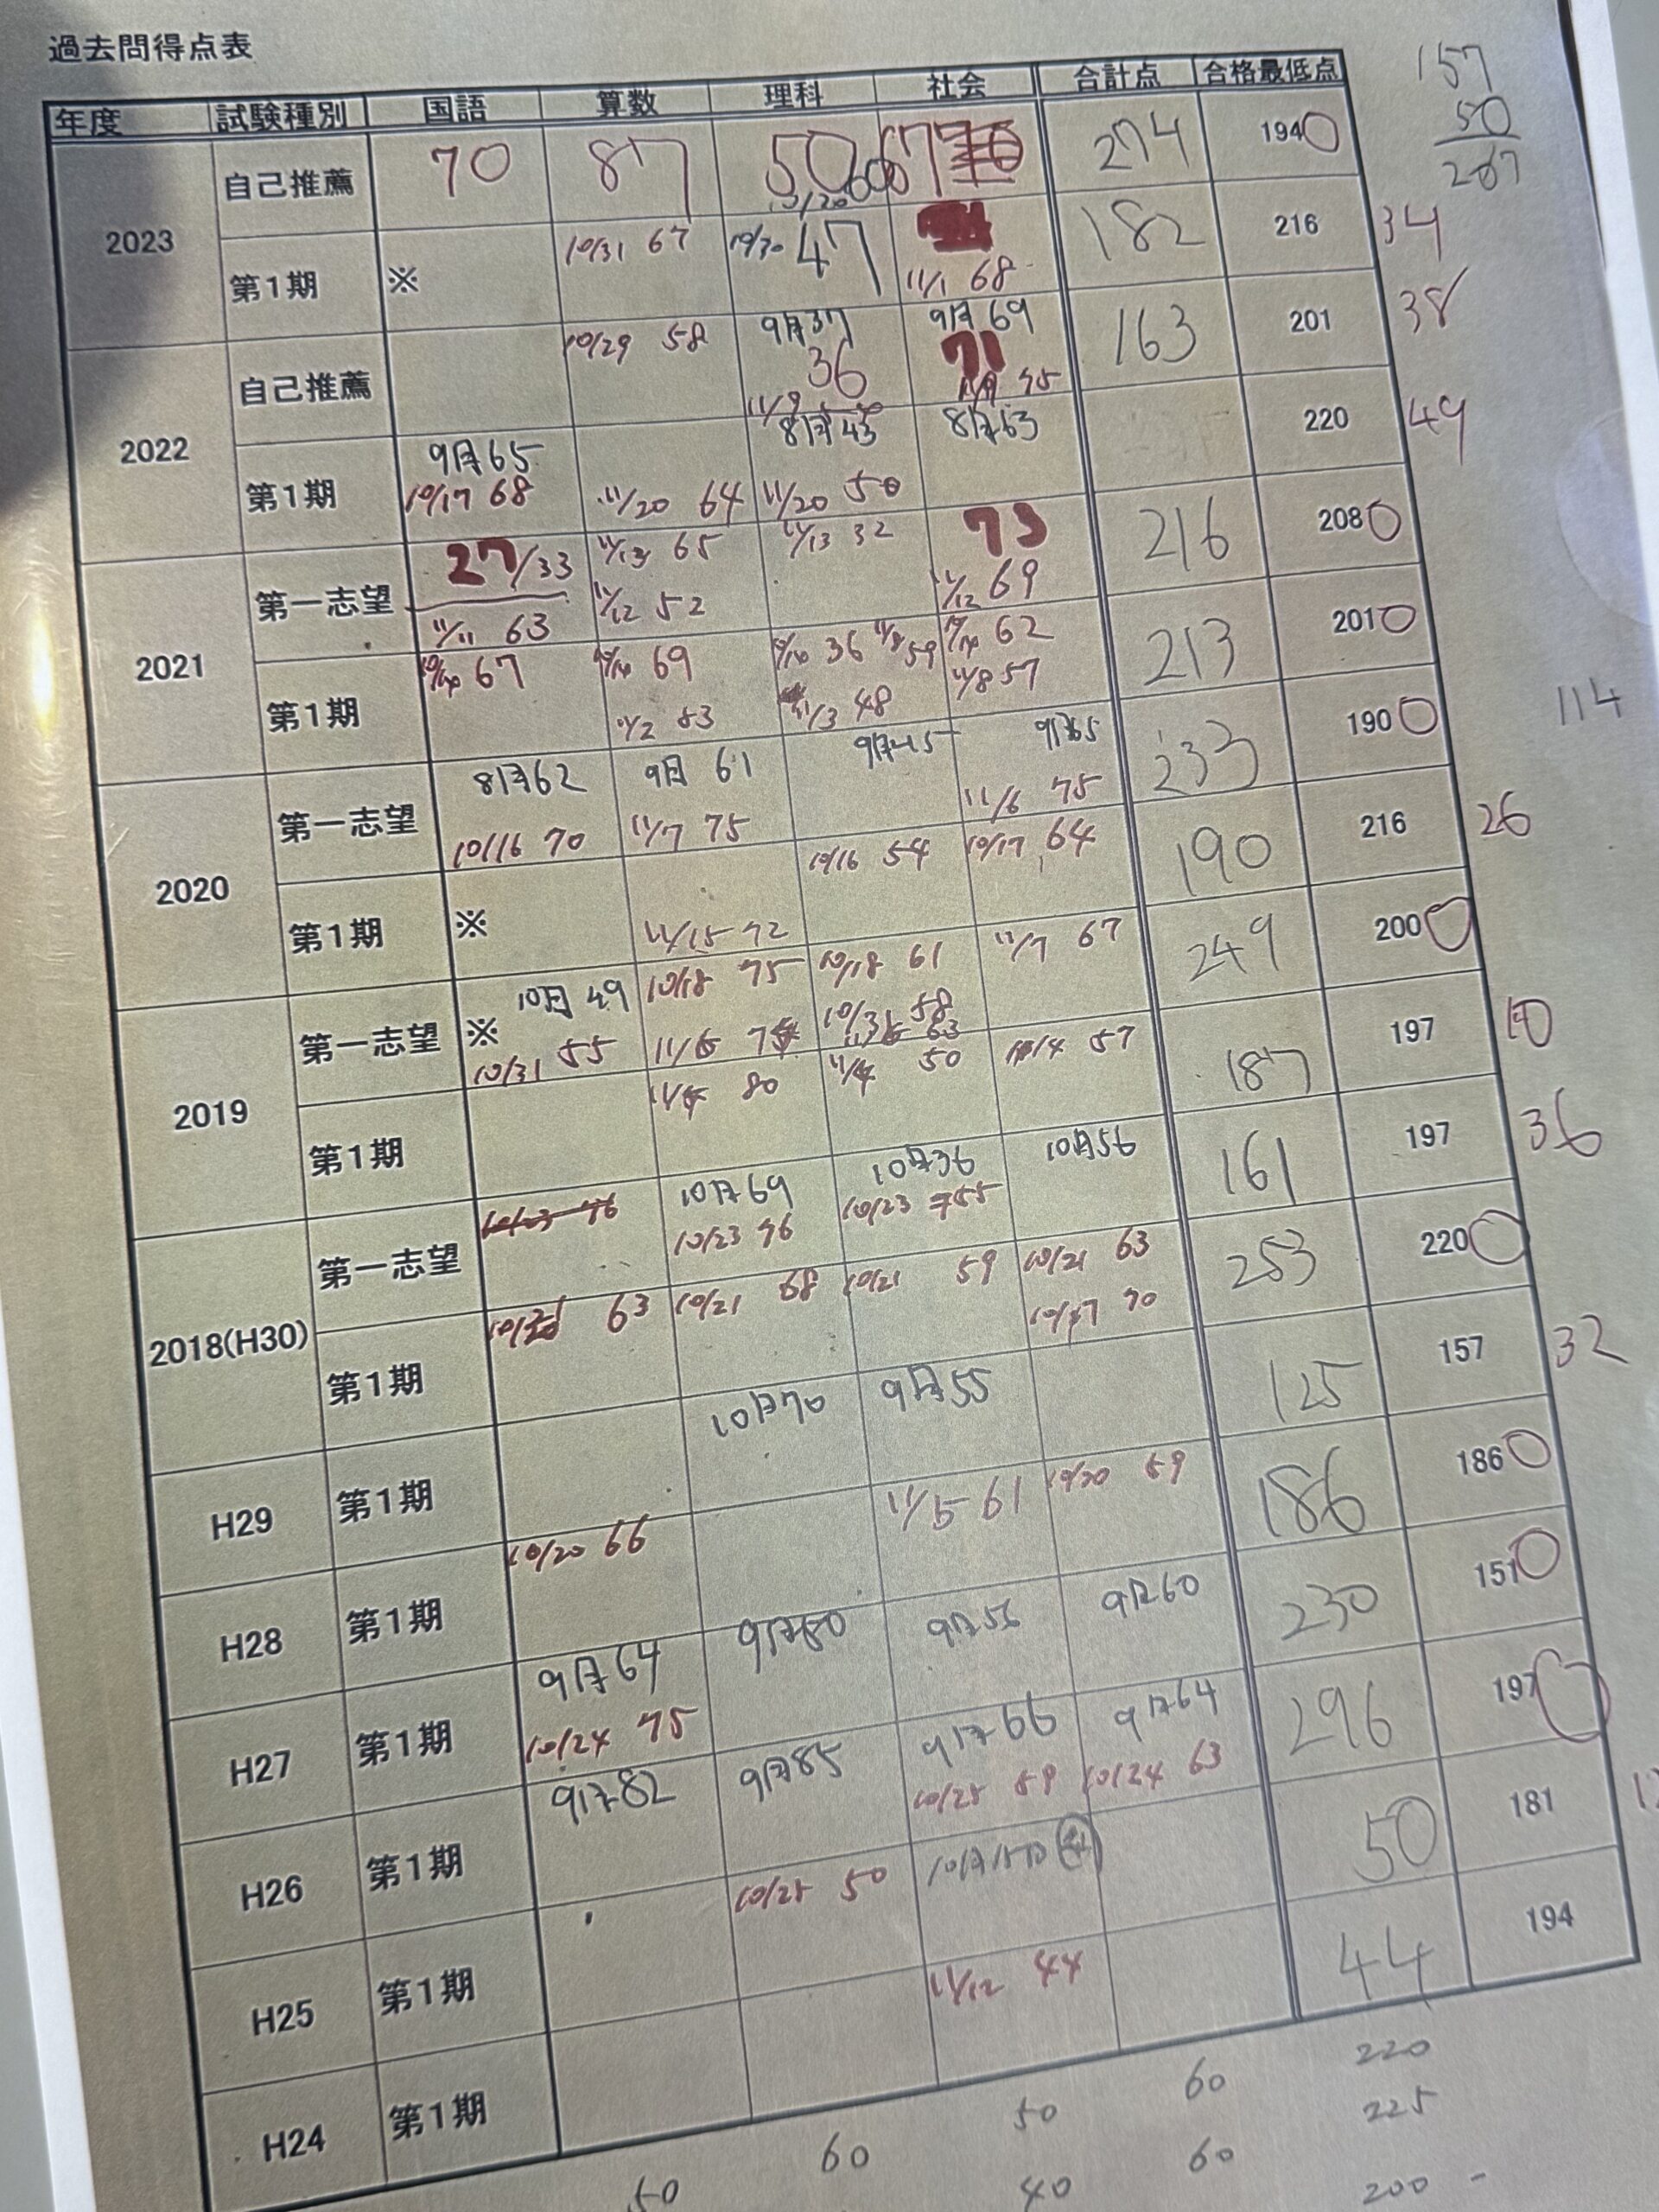 過去問得点表
157
50
207
年度 試験種別 国語 算数 理科 社会 合計点 合格最低点
2023 自己推薦 70 87 50 60 67 274 194
第1期 ※ 10/31 67 10/30 47 11/1 68 182 216 34
2022 自己推薦 10/29 58 9月37 36 11/9 9月69 71 11/9 75 163 201 38
第1期 9月65 10/17 68 11/20 64 8月43 11/20 50 8月63 220 49
2021 第一志望 27/33 11/11 63 11/13 65 11/12 52 11/13 32 73 11/12 69 216 208
第1期 10/14 67 10/14 69 11/2 83 10/14 36 11/8 59 11/3 48 10/14 62 11/8 57 213 201
114
2020 第一志望 8月62 10/16 70 9月 61 11/7 75 9月45 9月65 11/6 75 233 190
第1期 ※ 11/15 72 10/16 54 10/17 64 190 216 26
2019 第一志望 ※ 10月 49 10/31 55 10/18 75 11/6 10/18 61 10/31 58 63 11/7 67 249 200
第1期 11/4 80 11/4 50 11/4 57 187 197 10
2018(H30) 第一志望 10月69 10/23 76 10月36 10/23 55 10月56 161 197 36
第1期 63 10/21 68 10/21 59 10/21 63 10/17 70 253 220
H29 第1期 10月70 9月55 125 157 32
H28 第1期 10/20 66 11/5 61 10/20 59 186 186
H27 第1期 9月64 10/24 75 9月50 9月56 9月60 230 151
H26 第1期 9月82 9月85 9月66 10/25 59 9月64 10/24 63 296 197
H25 第1期 10/25 50 50 181
H24 第1期 11/12 44 44 194
50 60 50 60 220
40 60 225
200